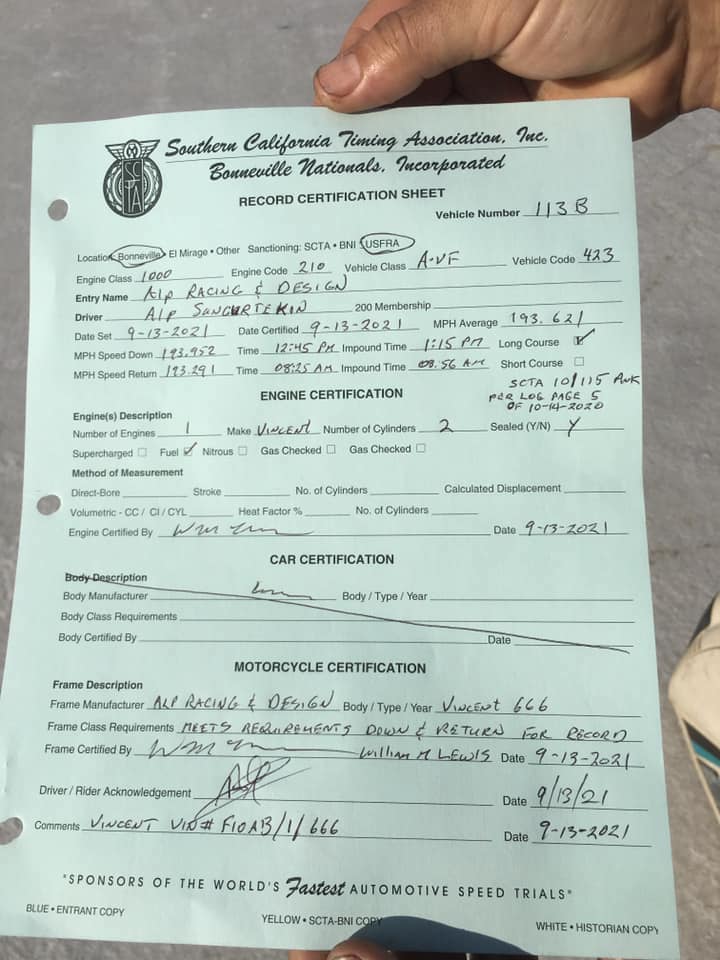 Southern California Timing Association, Inc.
Bonneville Nationals, Incorporated
SCTA
RECORD CERTIFICATION SHEET
Vehicle Number 113B
Location: Bonneville • El Mirage • Other Sanctioning: SCTA • BNI USFRA
Engine Class 1000 Engine Code 210 Vehicle Class A-VF Vehicle Code 423
Entry Name Alp RACING & DESIGN
Driver Alp SUNGURTEKIN 200 Membership
Date Set 9-13-2021 Date Certified 9-13-2021 MPH Average 193.621
MPH Speed Down 193.952 Time 12:45 PM Impound Time 1:15 PM Long Course ✓
MPH Speed Return 193.291 Time 08:25 AM Impound Time 08:56 AM Short Course
SCTA 10/115
PER LOG PAGE 5
OF 10-14-2020
ENGINE CERTIFICATION
Engine(s) Description
Number of Engines 1 Make VINCENT Number of Cylinders 2 Sealed (Y/N) Y
Supercharged Fuel ✓ Nitrous Gas Checked Gas Checked
Method of Measurement
Direct-Bore Stroke No. of Cylinders Calculated Displacement
Volumetric - CC / CI / CYL Heat Factor % No. of Cylinders
Engine Certified By Date 9-13-2021
CAR CERTIFICATION
Body Description
Body Manufacturer Body / Type / Year
Body Class Requirements
Body Certified By Date
MOTORCYCLE CERTIFICATION
Frame Description
Frame Manufacturer ALP RACING & DESIGN Body / Type / Year VINCENT 666
Frame Class Requirements MEETS REQUIREMENTS DOWN & RETURN FOR RECORD
Frame Certified By William M LEWIS Date 9-13-2021
Driver / Rider Acknowledgement Date 9/13/21
Comments VINCENT VIN# F10AB/1/666 Date 9-13-2021
"SPONSORS OF THE WORLD'S Fastest AUTOMOTIVE SPEED TRIALS"
BLUE • ENTRANT COPY YELLOW • SCTA-BNI COPY WHITE • HISTORIAN COPY